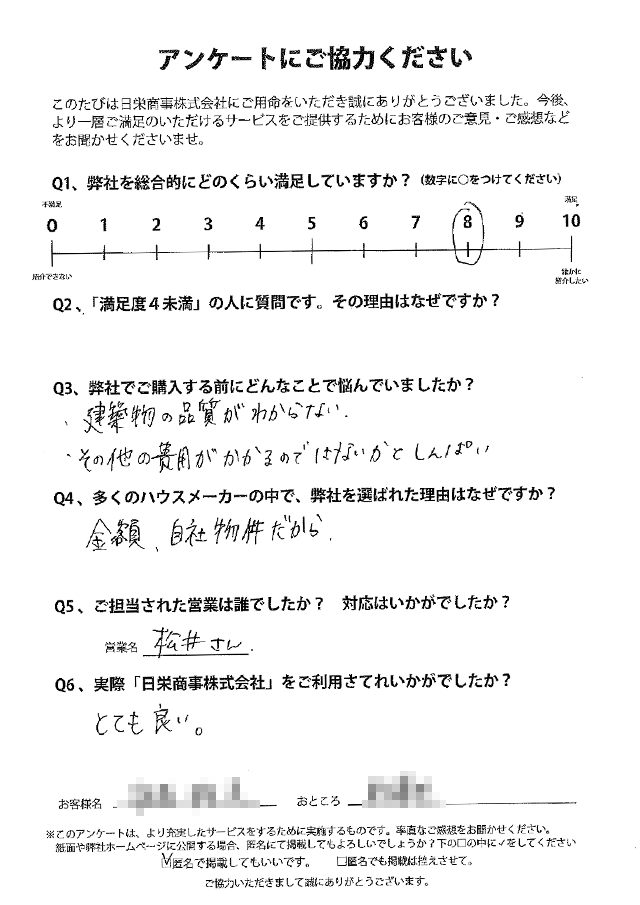 アンケートにご協力ください
このたびは日栄商事株式会社にご用命をいただき誠にありがとうございました。今後、
より一層ご満足のいただけるサービスをご提供するためにお客様のご意見・ご感想など
をお聞かせくださいませ。
Q1、弊社を総合的にどのくらい満足していますか？（数字に○をつけてください）
不満足 満足
0 1 2 3 4 5 6 7 8 9 10
紹介できない 誰かに
紹介したい
Q2、「満足度４未満」の人に質問です。その理由はなぜですか？
Q3、弊社でご購入する前にどんなことで悩んでいましたか？
・建築物の品質がわからない.
・その他の費用がかかるのではないかとしんぱい
Q4、多くのハウスメーカーの中で、弊社を選ばれた理由はなぜですか？
金額、自社物件だから.
Q5、ご担当された営業は誰でしたか？　対応はいかがでしたか？
営業名 松井さん.
Q6、実際「日栄商事株式会社」をご利用さてれいかがでしたか？
とても良い。
お客様名 おところ
※このアンケートは、より充実したサービスをするために実施するものです。率直なご感想をお聞かせください。
紙面や弊社ホームページに公開する場合、匿名にて掲載してもよろしいでしょうか？下の□の中に✓をしてください
☑匿名で掲載してもいいです。 □匿名でも掲載は控えさせて。
ご協力いただきまして誠にありがとうございます。